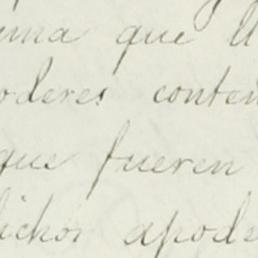 que
oderes conten
que fueren
dichos apode